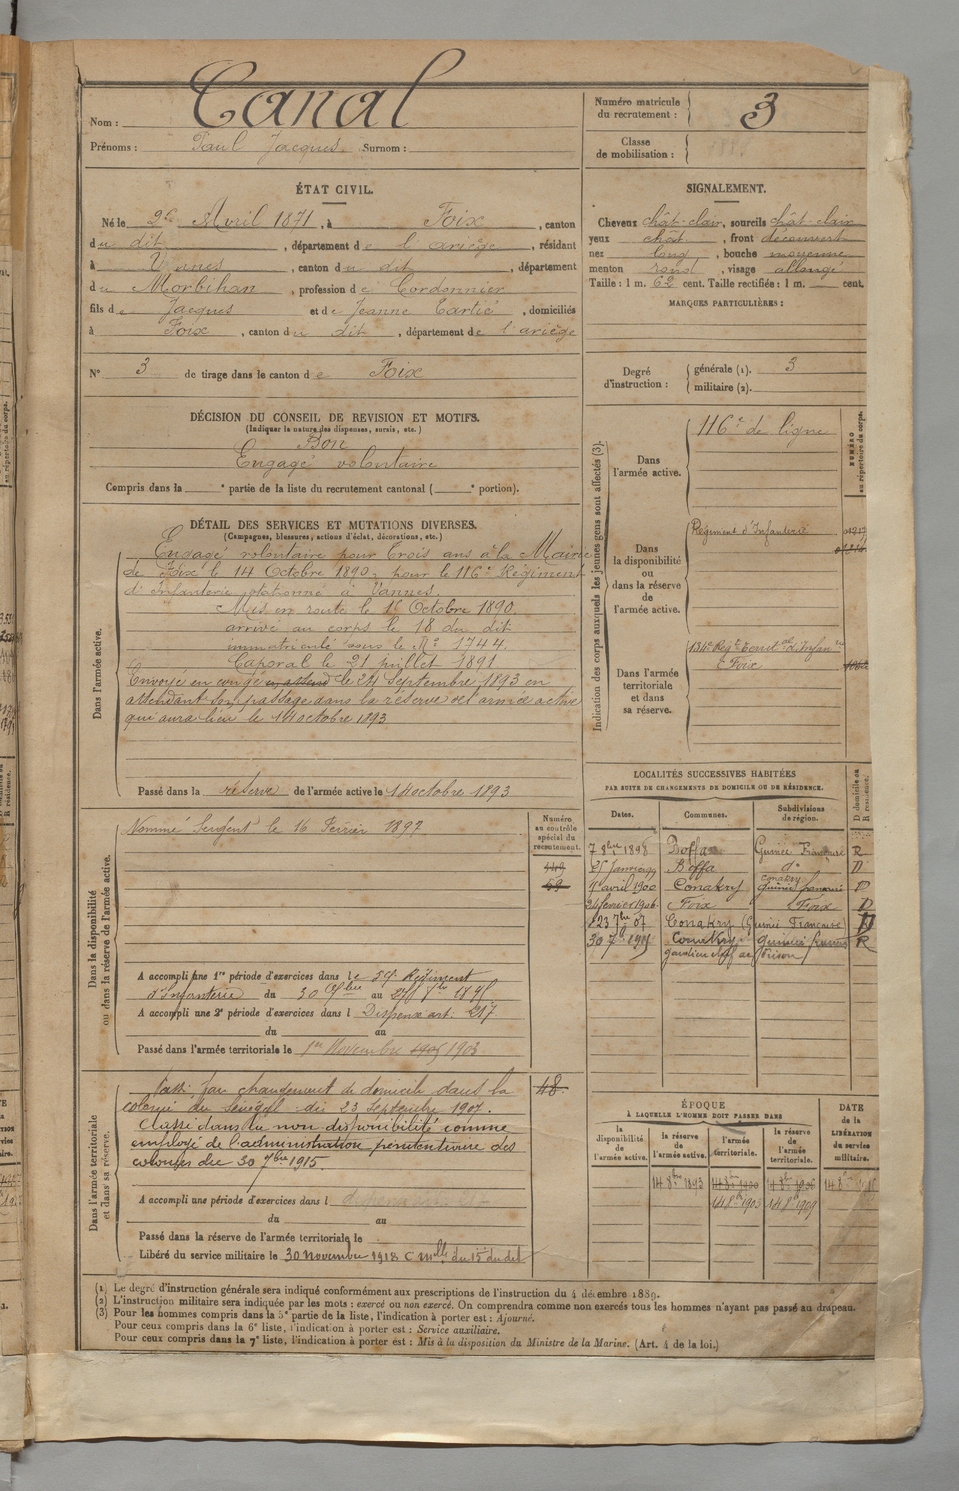 Nom : Canal
Prénoms : Paul Jacques. Surnom :
Numéro matricule du recrutement : 3
Classe de mobilisation :
ÉTAT CIVIL.
Né le 26 Avril 1871, à Foix, canton
du dit, département de l'ariège, résidant
à Vannes, canton du dit, département
du Morbihan, profession de Cordonnier
fils de Jacques et de Jeanne, domiciliés
à Foix, canton du dit, département de l'ariège
N° 3 de tirage dans le canton de Foix
DÉCISION DU CONSEIL DE REVISION ET MOTIFS.
(Indiquer la nature des dispenses, sursis, etc.)
Bon
Engagé volontaire
Compris dans la e partie de la liste du recrutement cantonal ( e portion).
DÉTAIL DES SERVICES ET MUTATIONS DIVERSES.
(Campagnes, blessures, actions d'éclat, décorations, etc.)
Dans l'armée active.
Engagé volontaire pour trois ans à la Mairie
de Foix le 14 Octobre 1890, pour le 116e Régiment
d'Infanterie stationné à Vannes.
Mis en route le 16 Octobre 1890.
arrivé au corps le 18 du dit
immatriculé sous le N° 1744.
Caporal le 21 juillet 1891
Envoyé en congé en attend le 24 Septembre 1893 en
attendant son passage dans la réserve de l'armée active
qui aura lieu le 14 octobre 1893
Passé dans la réserve de l'armée active le 14 octobre 1893
Dans la disponibilité ou dans la réserve de l'armée active.
Nommé Sergent le 16 Février 1897
Numéro au contrôle spécial du recrutement.
59
A accompli une 1re période d'exercices dans le 59e Régiment
d'Infanterie du 30 au 27
A accompli une 2e période d'exercices dans l Dispensé art. 217
du au
Passé dans l'armée territoriale le 1er Novembre 1905 1903
Dans l'armée territoriale et dans sa réserve.
Passé par changement de domicile dans la
colonie du Sénégal du 23 Septembre 1907.
Classé dans la non disponibilité comme
employé de l'administration pénitentiaire des
colonies du 30 7bre 1915.
48
A accompli une période d'exercices dans l
du au
Passé dans la réserve de l'armée territoriale le
Libéré du service militaire le 30 Novembre 1918 C melle du 15 du dit
SIGNALEMENT.
Cheveux chât-clair, sourcils chât-clair
yeux chât, front découvert
nez long, bouche moyenne
menton rond, visage allongé
Taille : 1 m. 62 cent. Taille rectifiée : 1 m. cent.
MARQUES PARTICULIÈRES :
Degré d'instruction :
générale (1). 3
militaire (2).
Indication des corps auxquels les jeunes gens sont affectés (3).
NUMÉRO au répertoire du corps.
Dans l'armée active.
116e de ligne
Dans la disponibilité ou dans la réserve de l'armée active.
Régiment d'Infanterie
Dans l'armée territoriale et dans sa réserve.
134e Regt Territal d'Infanrie
Foix
LOCALITÉS SUCCESSIVES HABITÉES
PAR SUITE DE CHANGEMENTS DE DOMICILE OU DE RÉSIDENCE.
Dates. Communes. Subdivisions de région. D domicile ou R résidence.
7 8bre 1898 Boffa Guinée Française R
25 Janvier 99 Boffa do D
1er avril 1900 Conakry Conakry D
24 février 1906 Foix Foix D
23 7bre 07 Conakry (Guinée Française) D
30 7b Conakry R
ÉPOQUE
À LAQUELLE L'HOMME DOIT PASSER DANS
la disponibilité de l'armée active.
la réserve de l'armée active.
l'armée territoriale.
la réserve de l'armée territoriale.
DATE de la LIBÉRATION du service militaire.
14 8bre 1893
14 8b 1903 14 8b 1909
(1) Le degré d'instruction générale sera indiqué conformément aux prescriptions de l'instruction du 4 décembre 1889.
(2) L'instruction militaire sera indiquée par les mots : exercé ou non exercé. On comprendra comme non exercés tous les hommes n'ayant pas passé au drapeau.
(3) Pour les hommes compris dans la 5e partie de la liste, l'indication à porter est : Ajourné.
Pour ceux compris dans la 6e liste, l'indication à porter est : Service auxiliaire.
Pour ceux compris dans la 7e liste, l'indication à porter est : Mis à la disposition du Ministre de la Marine. (Art. 4 de la loi.)